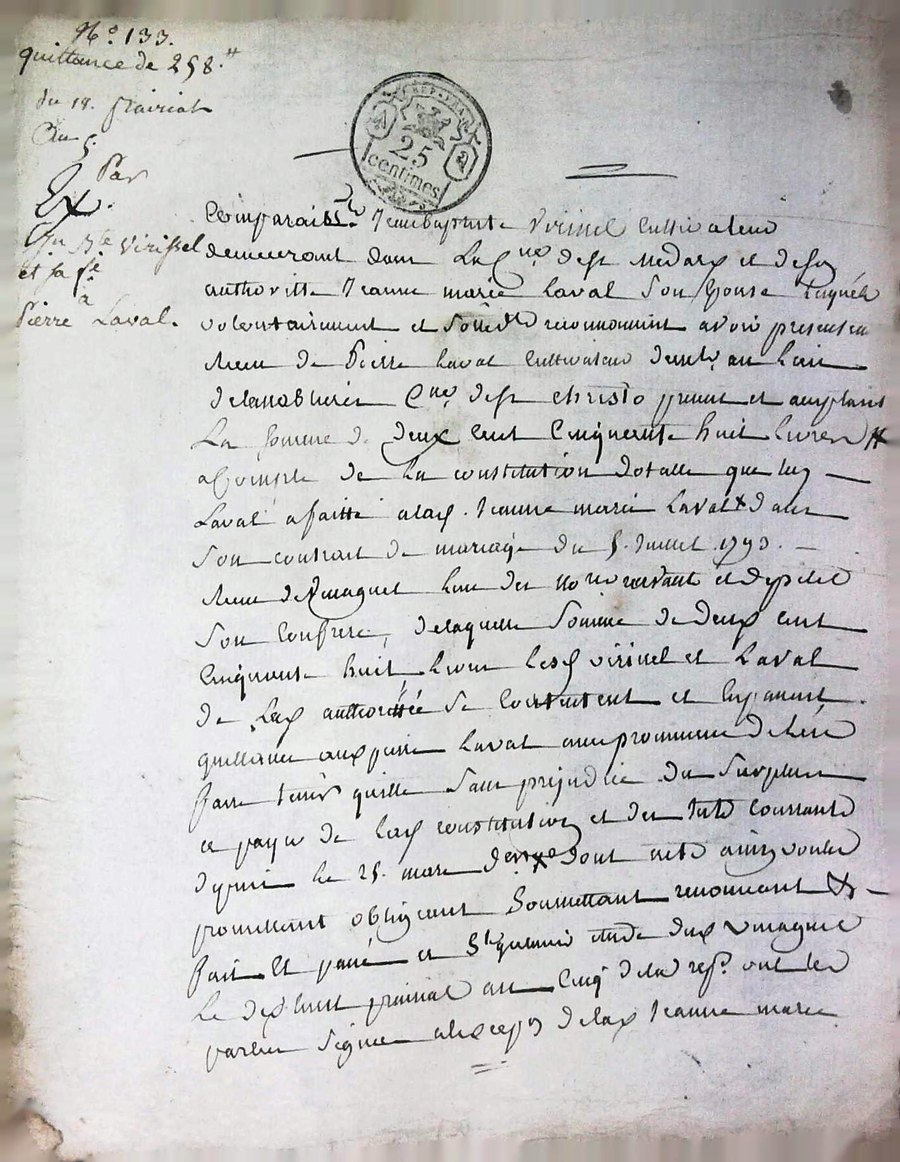 N.° 133.
quittance de 258.ᵗᵗ
du 18. prairial
an 5.
Par
Ex.
Jn Bte Virissel
et sa fe
à
Pierre Laval.
REP. FRA
25
centimes
Comparaissent Jean Baptiste Virissel Cultivateur
demeurant dans La Cne de St Medard et de soy
authorittée Jeanne marie Laval Son Epouse Lesquels
volontairement et reconnoissent avoir
Receu de Pierre Laval Cultivateur demt au Lieu
Cne de St Christo present et acceptant
La Somme de deux Cent Cinquante huit Livres tt
a Compte de La constitution dotalle que luy
Laval a faitte a lad. Jeanne marie Laval dans
Son contrait de mariage du 5. Juillet 1793.
Receu des no.res
Son Confrere, de laquelle Somme de deux Cent
Cinquante huit Livres Lesd virissel et Laval
de Lad authorittée Se Contentent et
quittance aud pierre Laval avec promesse de L'en
faire tenir quitte Sans prejudice du Surplus
a payer de Lad constitution et des
depuis le 25. mars dont acte ainsy voulu
promettant obligeant Soumettant renonceant &
fait Et passé a St étude dud
Le dix huit prairial an Cinq de la rep.e ont les
parties Signée a l'excepn de lad Jeanne marie